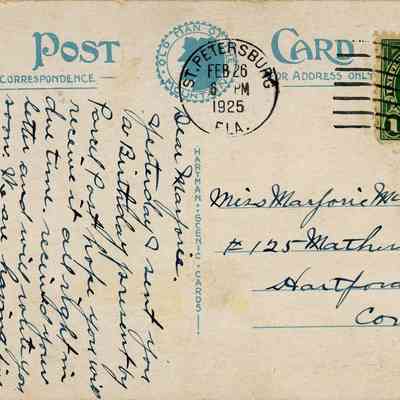 POST CARD
CORRESPONDENCE
FOR ADDRESS ONLY
OLD MAN OF
MOUNT
ST. PETERSBURG
FEB 26
6 PM
1925
FLA.
HARTMAN-SCENIC-CARDS
Dear Marjorie.
Yesterday I sent you
a Birthday present by
Parcel Post hope you will
receive it all right in
due time. receiv'd your
letter and will write you
soon. We are having
Miss Marjorie Mc
# 125 Mather
Hartford
Co
1